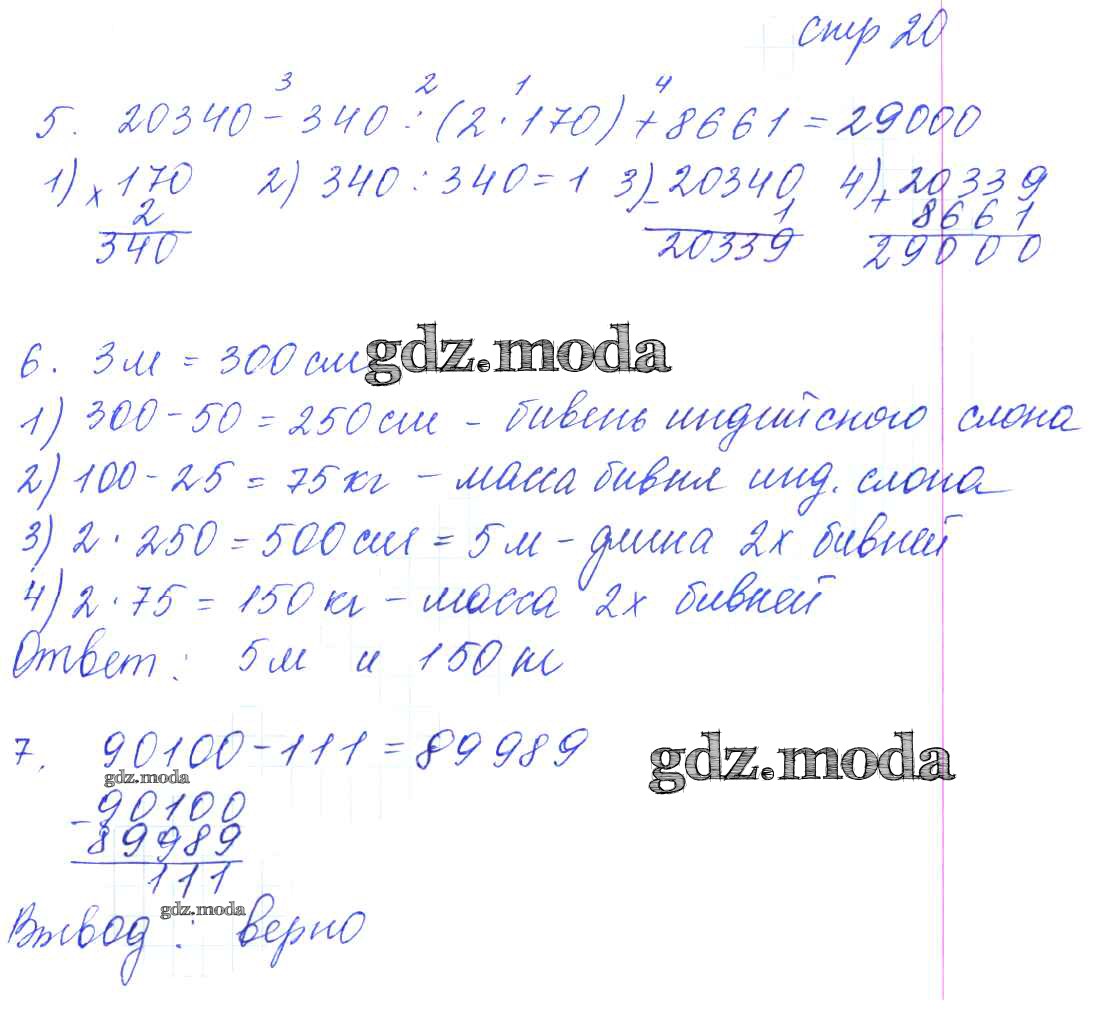 стр 20
3 2 1 4
5. 20340 - 340 : (2 · 170) + 8661 = 29000
1) × 170 2) 340 : 340 = 1 3) - 20340 4) + 20339
2 1 8661
340 20339 29000
6. 3 м = 300 см gdz.moda
1) 300 - 50 = 250 см - бивень индийского слона
2) 100 - 25 = 75 кг - масса бивня инд. слона
3) 2 · 250 = 500 см = 5 м - длина 2х бивней
4) 2 · 75 = 150 кг - масса 2х бивней
Ответ: 5 м и 150 кг
7. 90100 - 111 = 89989 gdz.moda
gdz.moda
- 90100
89989
111
gdz.moda
Вывод: верно